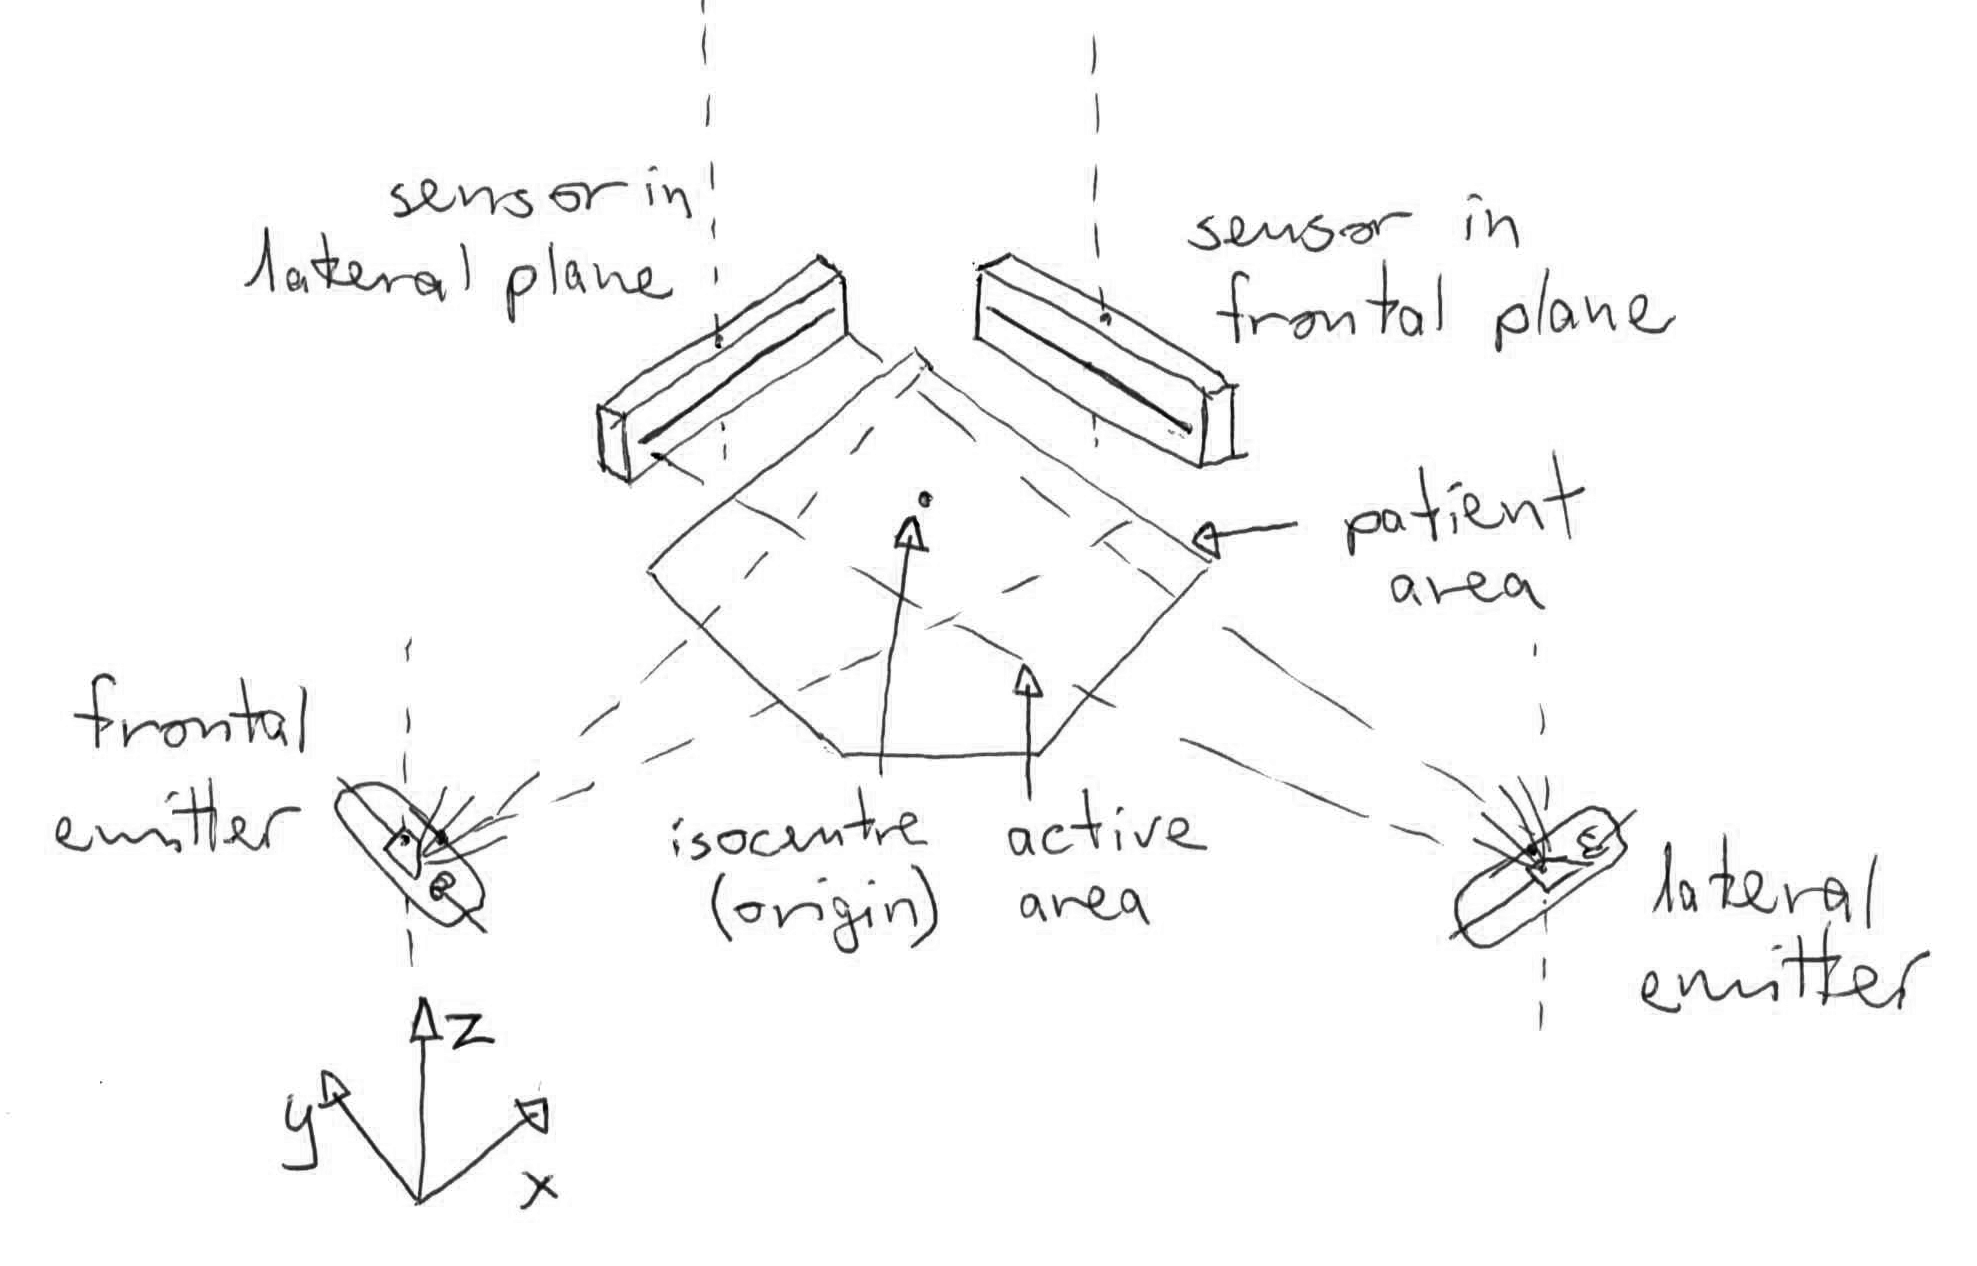 sensor in
lateral plane
sensor in
frontal plane
patient
area
frontal
emitter
isocentre
(origin)
active
area
lateral
emitter
z
y
x